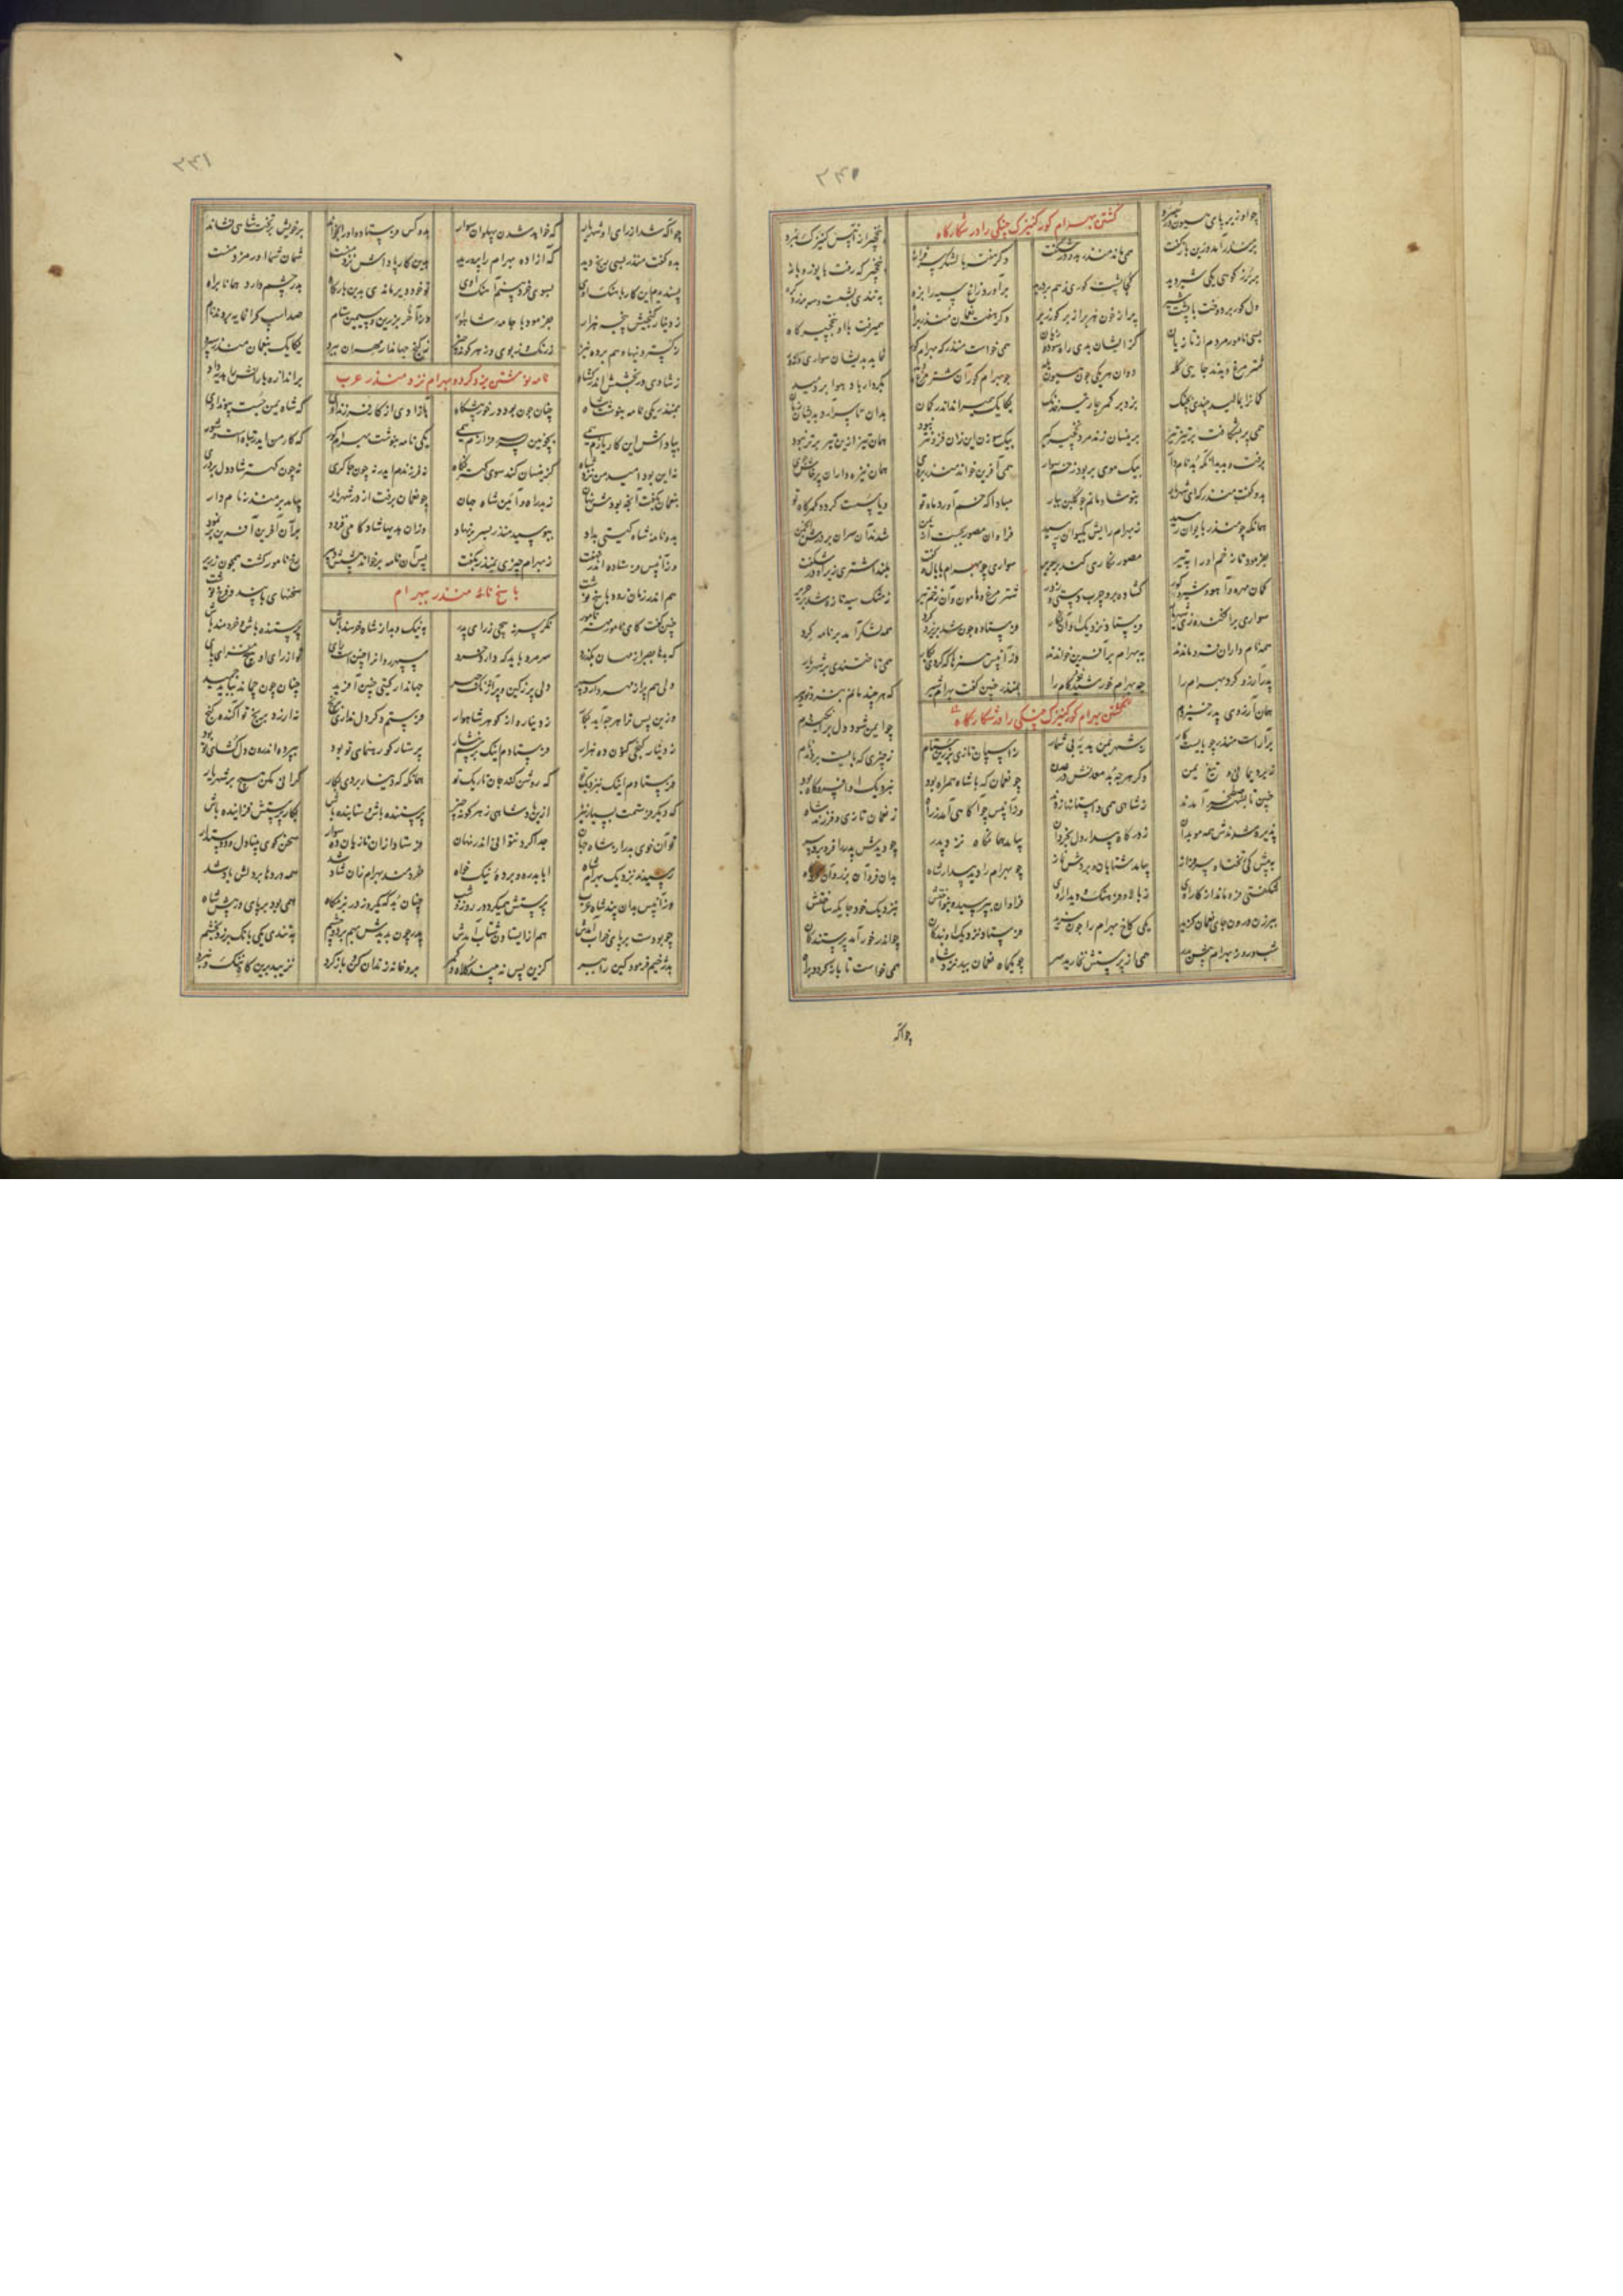 ۳۴۰
چو او زیر پای هیون در سپرد
کشتن بهرام کور کنیزک چنکی را در شکارکاه
بنخچیر از آن پس کنیزک نبرد
بر منذر آمد وزین بازکفت همی ماند منذر بدو در شکفت دکر هفته با لشکر سرفراز بنخچیرکه رفت با یوز و باز
ببرز کوهی یکی شیر دید کجا پشت کوری ز هم بردرید برآورد زاغ سیه را بزه به تندی بشست سه پر زد کره
دل کور بر دوخت با پشت شیر پر از خون هژبر از بر کور زیر دکر هفته نعمان و منذر براه همیرفت با او بنخچیرکاه
بسی نامور مردم از تازیان کزایشان بدی راه سود و زیان همی خواست منذر که بهرام کور نماید بدیشان سواری و زور
شترمرغ دیدند جایی کله دوان هر یکی چون هیون یله چو بهرام کور آن شترمرغ دید بکردار باد هوا بردمید
کمانرا بمالید چندی بچنک بزد بر کمر چار تیر خدنک یکایک همیراند اندر کمان بدان تا سرآرد بدیشان زمان
همی پر بشکافت بر تیز تیر برینسان زند مرد نخچیرکیر بیک سوزن این زان فزونتر نبود همان تیر ازین تیر برتر نبود
برفت و بدید آنکه بد نامدار بیک موی بر بود زخم سوار همی آفرین خواند منذر بروی همان نیزه داران پرخاشجوی
بدو کفت منذر که ای شهریار بتو شادمانم چو کلبن ببار مبادا که خم آورد ماه تو ویا سست کردد کمرکاه تو
همانکه چو منذر بایوان رسید ز بهرام رایش بکیوان رسید فراوان مصور بجست از یمن شدند آن سران بر درش انجمن
بفرمود تا زخم او را به تیر مصور نکاری کند بر حریر سواری چو بهرام با یال و کفت بلند اشتری زیر او در شکفت
کمان مهره و آهو و شیر و کور کشاده بر و چرب دستی و زور شترمرغ و هامون و آن زخم تیر ز مشک سیه تازه شد بر حریر
سواری برافکند زی شهریار فرستاد نزدیک او آن نکار فرستاده چون شد بر یزدکرد همه لشکر آمد بر نامه کرد
همه نام داران فرو ماندند به بهرام بر آفرین خواندند وزآنپس هنرها که کردی بکار همی تاختندی بر شهریار
پدر آرزو کرد بهرام را چو بهرام خورشید خودکام را بمنذر چنین کفت بهرام شیر که هر چند مانم بنزد تو دیر
همان آرزوی پدر خیزدم
کشتن بهرام کور کنیزک چنکی را در شکارکاه
چو ایمن شود دل برانکیزدم
برآراست منذر چو بایست کار ز شهر یمن هدیه بی شمار ز اسپان تازی بزرین ستام ز چیزی که بایست بردند نام
ز برد یمانی و تیغ یمن دکر هرچه بد معدنش در عدن چو نعمان که با شاه همراه بود بنزدیک او افسر و کاه بود
چنین تا بشهر صطخر آمدند ز شاهی همی داستانها زدند وزآنپس چو آکاهی آمد ز راه ز نعمان تازی و فرزند شاه
پذیره شدندش همه موبدان ز درکاه بیدار دل بخردان بیامد همانکاه نزد پدر چو دیدش پدر را فرو برد سر
به پیش کی بیامد شتابان و بردش نماز چو بهرام را دید بیدار شاه بدان فر و آن برز و آن
شکفتی فرو ماند از کار اوی ز بالا و فرهنک و دیدار اوی فراوان بپرسید و بنواختش بنزدیک خود جایکه ساختش
ببرزن درون جای نعمان کزید یکی کاخ بهرام را چون سزید فرستاد نزدیک او بندکان چو اندر خور آمد پرستندکان
شب و روز بهرام پیش پدر همی از پرستش نخارید سر چو یکماه نعمان ببد نزد شاه همی خواست تا بازکردد براه
چو آکه
۳۴۱
چو آکه شد از رای او شهریار که خواهد شدن پهلوان سوار بدو کس فرستاد و او را بخواند برخویش بر تخت شاهی نشاند
بدو کفت منذر بسی رنج دید که آزاده بهرام را پرورید بدین کار پاداش نزد منست شمان شما اورمزد منست
پسندیدم این کارها سنک اوی بسوی خرد بینم آهنک اوی تو خود دیر ماندی بدین بارکاه پدر چشم دارد همانا براه
ز دینار کنجیش پنجه هزار بفرمود با جامه شاهوار ز آخر بزرین و سیمین ستام صد اسپ کرانمایه بردند نام
ز کستردنیها و هم برده نیز ز رنک و ز بوی و ز هر کونه چیز ز کنج جهاندار مهران ببرد یکایک بنعمان منذر سپرد
ز شادی در بخشش اندرکشاد
نامه نوشتن یزدکرد و بهرام نزد منذر عرب
براندازه یارانش را هدیه داد
بمنذر یکی نامه بنوشت شاه چنان چون بود در خور پیشکاه بازادی از کار فرزند اوی که شاه یمن جست پیوند اوی
بپاداش این کار یازم همی بچونین پسر سرفرازم همی یکی نامه بنوشت بهرام کور که کار من ایدر تباهست و شور
نه این بود امید من نزد شاه کزینسان کند سوی کهتر نکاه نه فرزندم ایدر نه چون چاکری نه چون کهتر شاد دل بر دری
بنعمان بکفت آنچه بودش نهان ز بد راه و آئین شاه جهان چو نعمان برفت از در شهریار بیامد بر منذر نامدار
بدو نامه شاه کیتی بداد ببوسید منذر بسر برنهاد وزان هدیها شادکامی فزود بر آن آفرین آفرین بر فزود
وزآنپس فرستاده اندر نهفت ز بهرام چیزی بمنذر بکفت پس آن نامه برخواند پیشش دبیر رخ نامور کشت همچون زریر
هم اندر زمان زود پاسخ نوشت
پاسخ نامه منذر بهرام
سخنهای با پند و فرخ نوشت
چنین کفت کای نامور مهتر نکر سر نپیچی ز رای پدر به نیک و بد از شاه خرسند باش پرستنده باش و خردمند باش
که بدها بصبر از مهان بکذرد سر مرد باید که دارد خرد سپهر روانرا چنین است رای تو از رای او هیچ مفزای پای
دلی را پر از مهر دارد سپهر دلی پر ز کین و پر آژنک چهر جهاندار کیتی چنین آفرید چنان چون چماند بباید چمید
وزین پس ترا هرچه آید بکار ز دینار و از کوهر شاهوار فرستم نکر دل نداری برنج نیرزد برنج تو آکنده کنج
ز دینار کنجی کنون ده هزار فرستادم اینک برسم نثار پرستار کو رهنمای تو بود بپرده اندرون دل کشای تو بود
فرستادم اینک بنزدیک تو که روشن کند جان تاریک تو همانکه که دینار بردی بکار کرانی مکن هیچ بر شهریار
که دیکر فرستمت بسیار نیز ازین پادشاهی ز هر کونه چیز پرستنده باش و ستاینده باش بکار پرستش فزاینده باش
تو آن خوی بد را ز شاه جهان جدا کرد نتوانی اندر نهان فرستاد از آن تازیان ده سوار سخن کوی و بینادل و دوستدار
رسیدند نزدیک بهرام شاه ابا بدره و برده نیک خواه خردمند بهرام زان شاد شد همه دردها بر دلش باد شد
وزآنپس بدان پند شاه عرب پرستش همیکرد روز و شب چنان بد که یک روز در بزمکاه همی بود بر پای در پیش شاه
چو بودست بر پای خواب آمدش هم از ایستادن شتاب آمدش پدر چون بدیدش بهم برده چشم به تندی یکی بانک بر زد بخشم
بدژخیم فرمود کین را ببر کزین پس نه بیند کلاه و کمر بدو خانه زندان کن و بازکرد نزیبد برین کاه ننک و نبرد